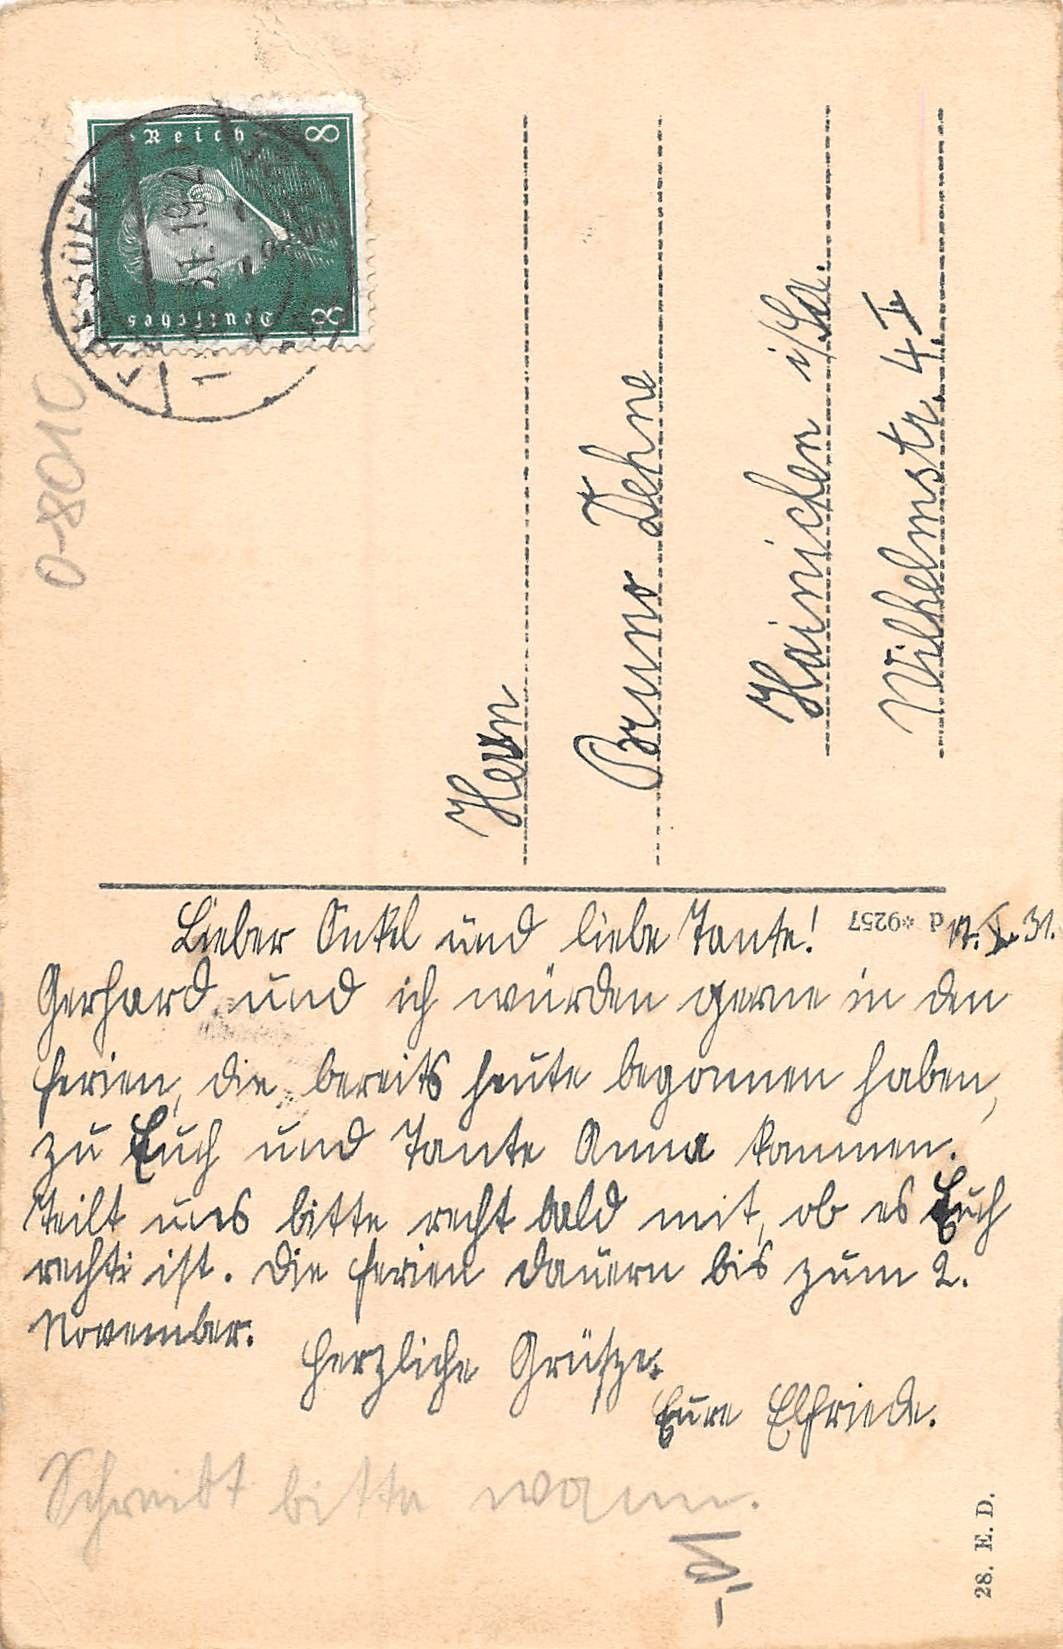 Deutsches Reich
8 8
O-8010
Herrn
Bruno Dehne
Hainichen i/Sa.
Wilhelmstr. 4 I
d *9257
Lieber Onkel und liebe Tante!
Gerhard und ich würden gerne in den
Ferien, die bereits heute begonnen haben,
zu Euch und Tante Anna kommen.
Teilt uns bitte recht bald mit, ob es Euch
recht ist. Die Ferien dauern bis zum 2.
November.
Herzliche Grüsze.
Eure Elfriede.
Schreibt bitte wann.
28. E. D.